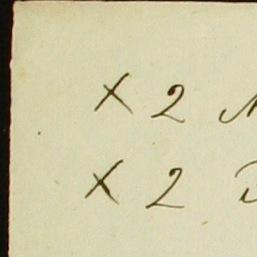 × 2
× 2